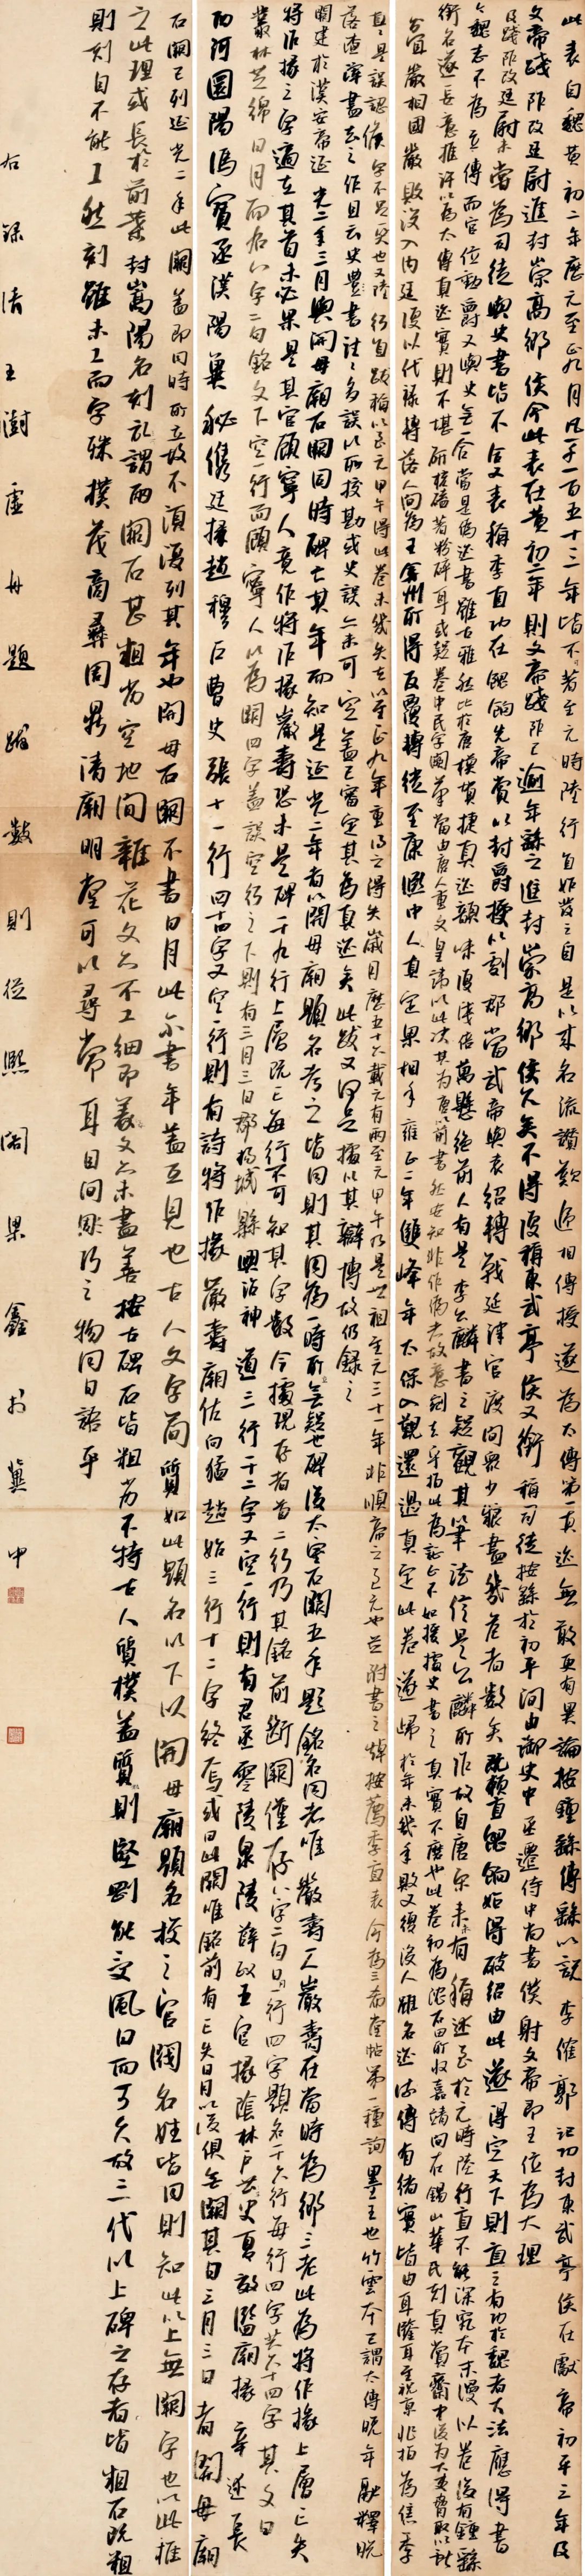 此表自魏黄初二年歷元至正九月凡一千一百五十三年皆不著至元時陸行直始發之自是以來名流讚歎遞相傳授遂為太傅第一真迹無敢更有異論按鍾繇傳繇以說李傕郭汜功封東武亭侯在獻帝初平三年及
文帝踐阼改廷尉進封崇高鄉侯今此表在黄初二年則文帝踐阼已逾年繇之進封崇高鄉侯久矣不得復稱東武亭侯又銜稱司徒按繇於初平間由御史中丞遷侍中尚書僕射文帝即王位為大理
及踐阼改廷尉未嘗為司徒與史書皆不合又表稱季直功在餽餉先帝賞以封爵授以劇郡當武帝與袁紹轉戰延津官渡間眾少糧盡幾危者數矣既賴直餽餉始得破紹由此遂得定天下則直之有功於魏者大法應得書
今魏志不為立傳而官位勳爵又與史無一合當是偽迹書雖古雅然比於唐模黃捷真迹韻味頓淺倍萬懸絕前人有是李公麟書之疑觀其筆法信是公麟所作故自唐宋來未有稱述至於元時陸行直不能深究本末漫以卷後有鍾繇
銜名遂妄意推許以為太傅真迹實則不堪研核卷中民字闕筆當由唐人重文皇諱以此决其為唐以前書然安知非作偽者故意刻去乎指此為証正不如援據史書之真實不磨也此卷初為沈石田所收嘉靖間在錫山華氏刻真賞齋中後為大吏脅取以獻
分宜嚴相國嚴敗沒入內廷復以代祿轉落人間為王弇州所得反覆轉徙至康熙中入真定梁相手雍正二年雙峰年太保入覲還過真定此卷遂歸於年未幾年敗又復沒入雖名迹流傳有緒實皆由耳鑒耳至視原非指為焦季
直是誤認焦字不是災也又陸行直跋稱以至元甲午得此卷未幾失去以至正九年重得之得失歲月歷五十六載元有兩至元甲午乃是世祖至元三十一年非順帝之至元也並附書之焯按薦季直表今為三希堂帖第一種詢墨王也竹雲本已謂太傅晚年融釋脫
落查滓書去之作且云史與書註多誤以所校勘或史誤亦未可定蓋已審定其為真迹矣此跋又何足據以其辯博故仍錄之
闕建於漢安帝延光二年三月與開母廟石闕同時碑亡其年而知是延光二年者以開母廟題名考之皆同則其同為一時所無疑也碑後太室石闕五年題銘名同者唯嚴壽一人嚴壽在當時為鄉三老此為將作掾上層已失
將作掾之字適在其首未必果是其官顧寧人竟作將作掾嚴壽恐未是碑二十九行上層既亡每行不可知其字數今據現存者首二行乃其銘前斷闕僅存八字二句一行四字題名十六行每行四字共六十四字其文曰
叢林芝綿日月而右八字二句銘文下空一行而顧寧人以為闕四字蓋誤空行之下則有三月三日郡陽城縣興治神道三行十二字又空一行則有君丞零陵泉陵薛政五官掾陰林戶曹史夏效監廟掾辛述長
西河圜陽馮寶丞漢陽冀秘儁廷掾趙穆戶曹史張十一行四十四字又空一行則有詩將作掾嚴壽廟佐向猛趙始三行十二字終焉或曰此闕唯銘前有已失日月以後俱無闕其曰三月三日者開母廟
石闕已列延光二年此闕蓋即同時所立故不須復列其年也開母石闕不書日月此不書年蓋互見也古人文字簡質如此題名以下以開母廟題名校之官閥名姓皆同則知此以上無闕字也以此推
之此理或長於前葉封嵩陽石刻記謂兩闕石甚粗劣空地間雜花文亦不工細即篆文亦未盡善按古碑石皆粗劣不特古人質樸蓋質粗則堅剛能受風日而可久故三代以上碑之存者皆粗石既粗
則刻自不能工然刻雖未工而字殊樸茂商彝周鼎清廟明堂可以尋常耳目間鄙巧之物同日語乎
右錄清王澍虛舟題跋數則從熙闇梁鑫於冀中